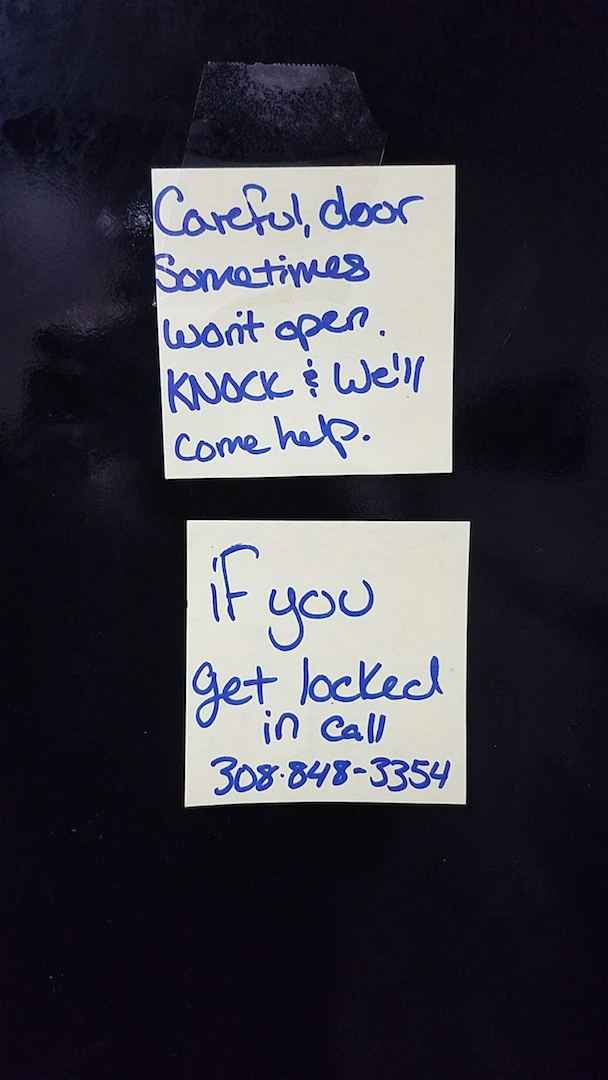 Careful, door
Sometimes
won't open.
KNOCK & We'll
come help.
if you
get locked
in call
308-848-3354